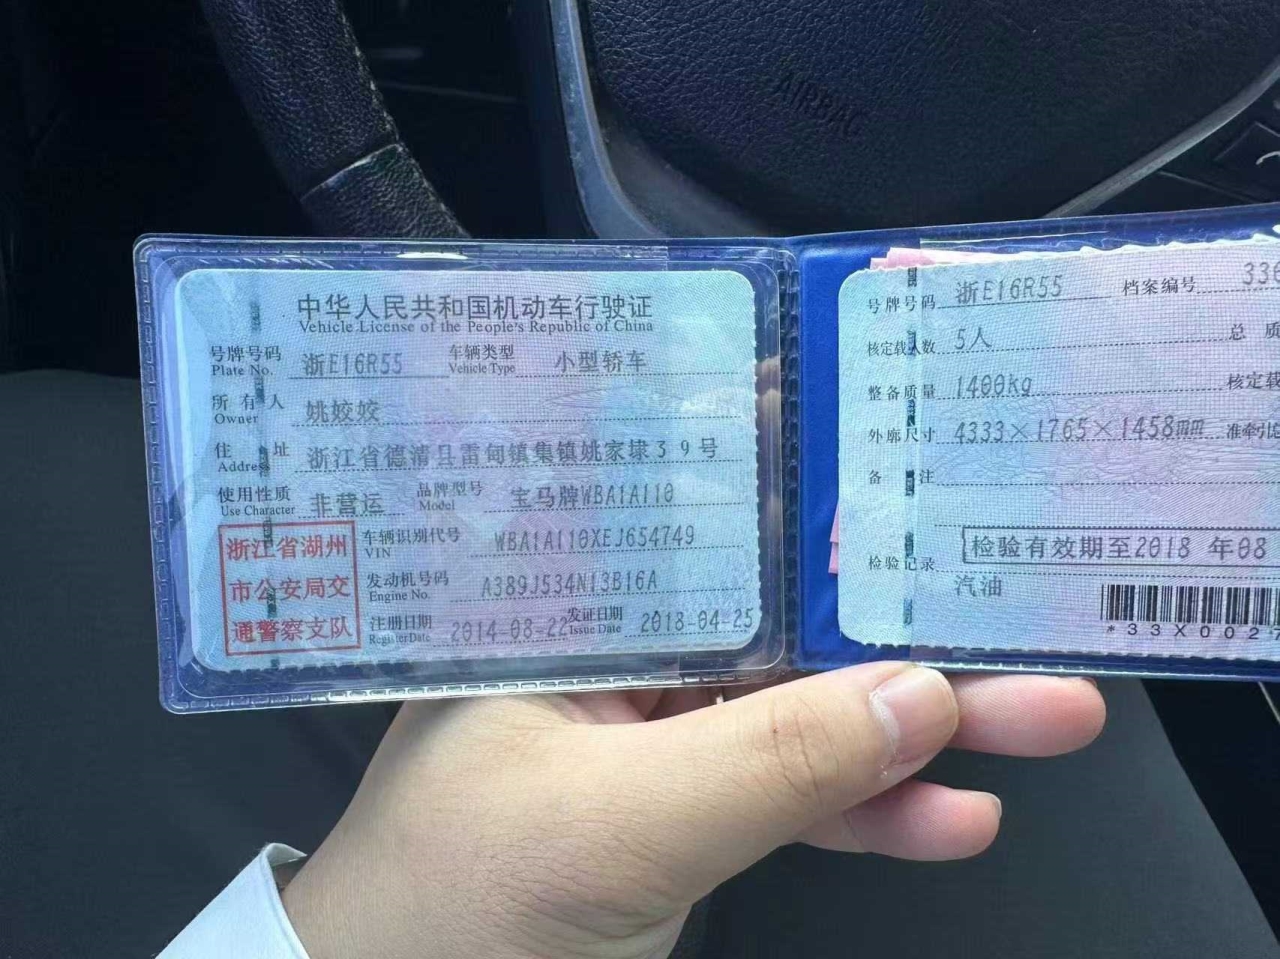 AIRBAG
中华人民共和国机动车行驶证
Vehicle License of the People's Republic of China
号牌号码 浙E16R55 车辆类型 小型轿车
Plate No. Vehicle Type
所有人 姚姣姣
Owner
住址 浙江省德清县雷甸镇集镇姚家埭39号
Address
使用性质 非营运 品牌型号 宝马牌WBA1A110
Use Character Model
浙江省湖州
市公安局交
通警察支队
车辆识别代号 WBA1A110XEJ654749
VIN
发动机号码 A389J534N13B16A
Engine No.
注册日期 2014-08-22 发证日期 2018-04-25
Register Date Issue Date
号牌号码 浙E16R55 档案编号 336
核定载人数 5人 总质
整备质量 1400kg 核定载
外廓尺寸 4333×1765×1458mm 准牵引
备注
检验记录 检验有效期至2018 年08
汽油
*33X002